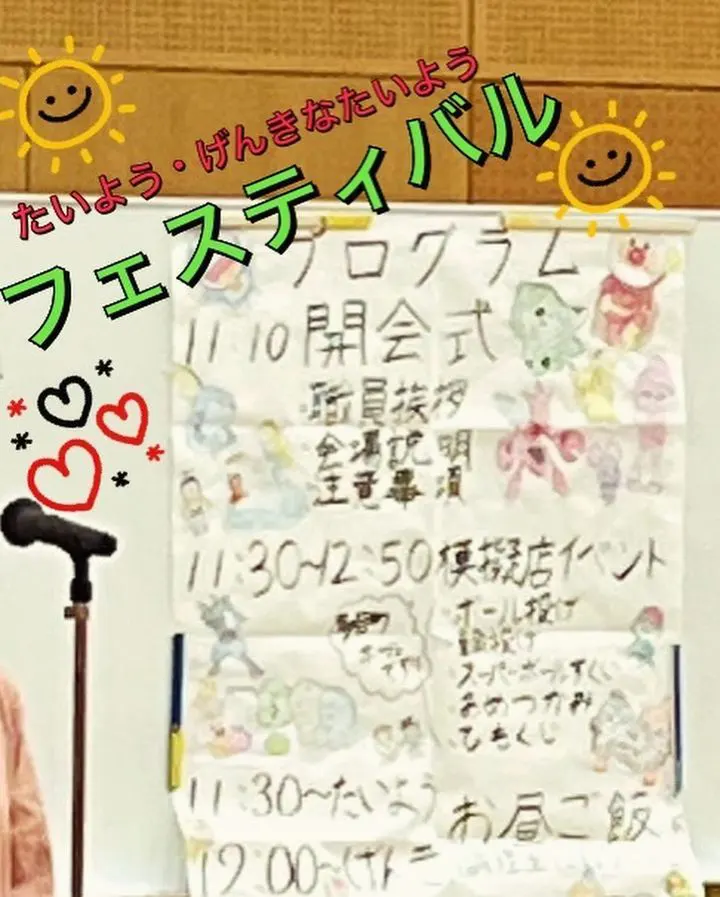 たいよう・げんきなたいよう
フェスティバル
プログラム
11:10 開会式
職員挨拶
会場説明
注意事項
11:30~12:50 模擬店イベント
ボール投げ
輪投げ
スーパーボールすくい
あめつかみ
ひもくじ
11:30~たいよう お昼ご飯
12:00~